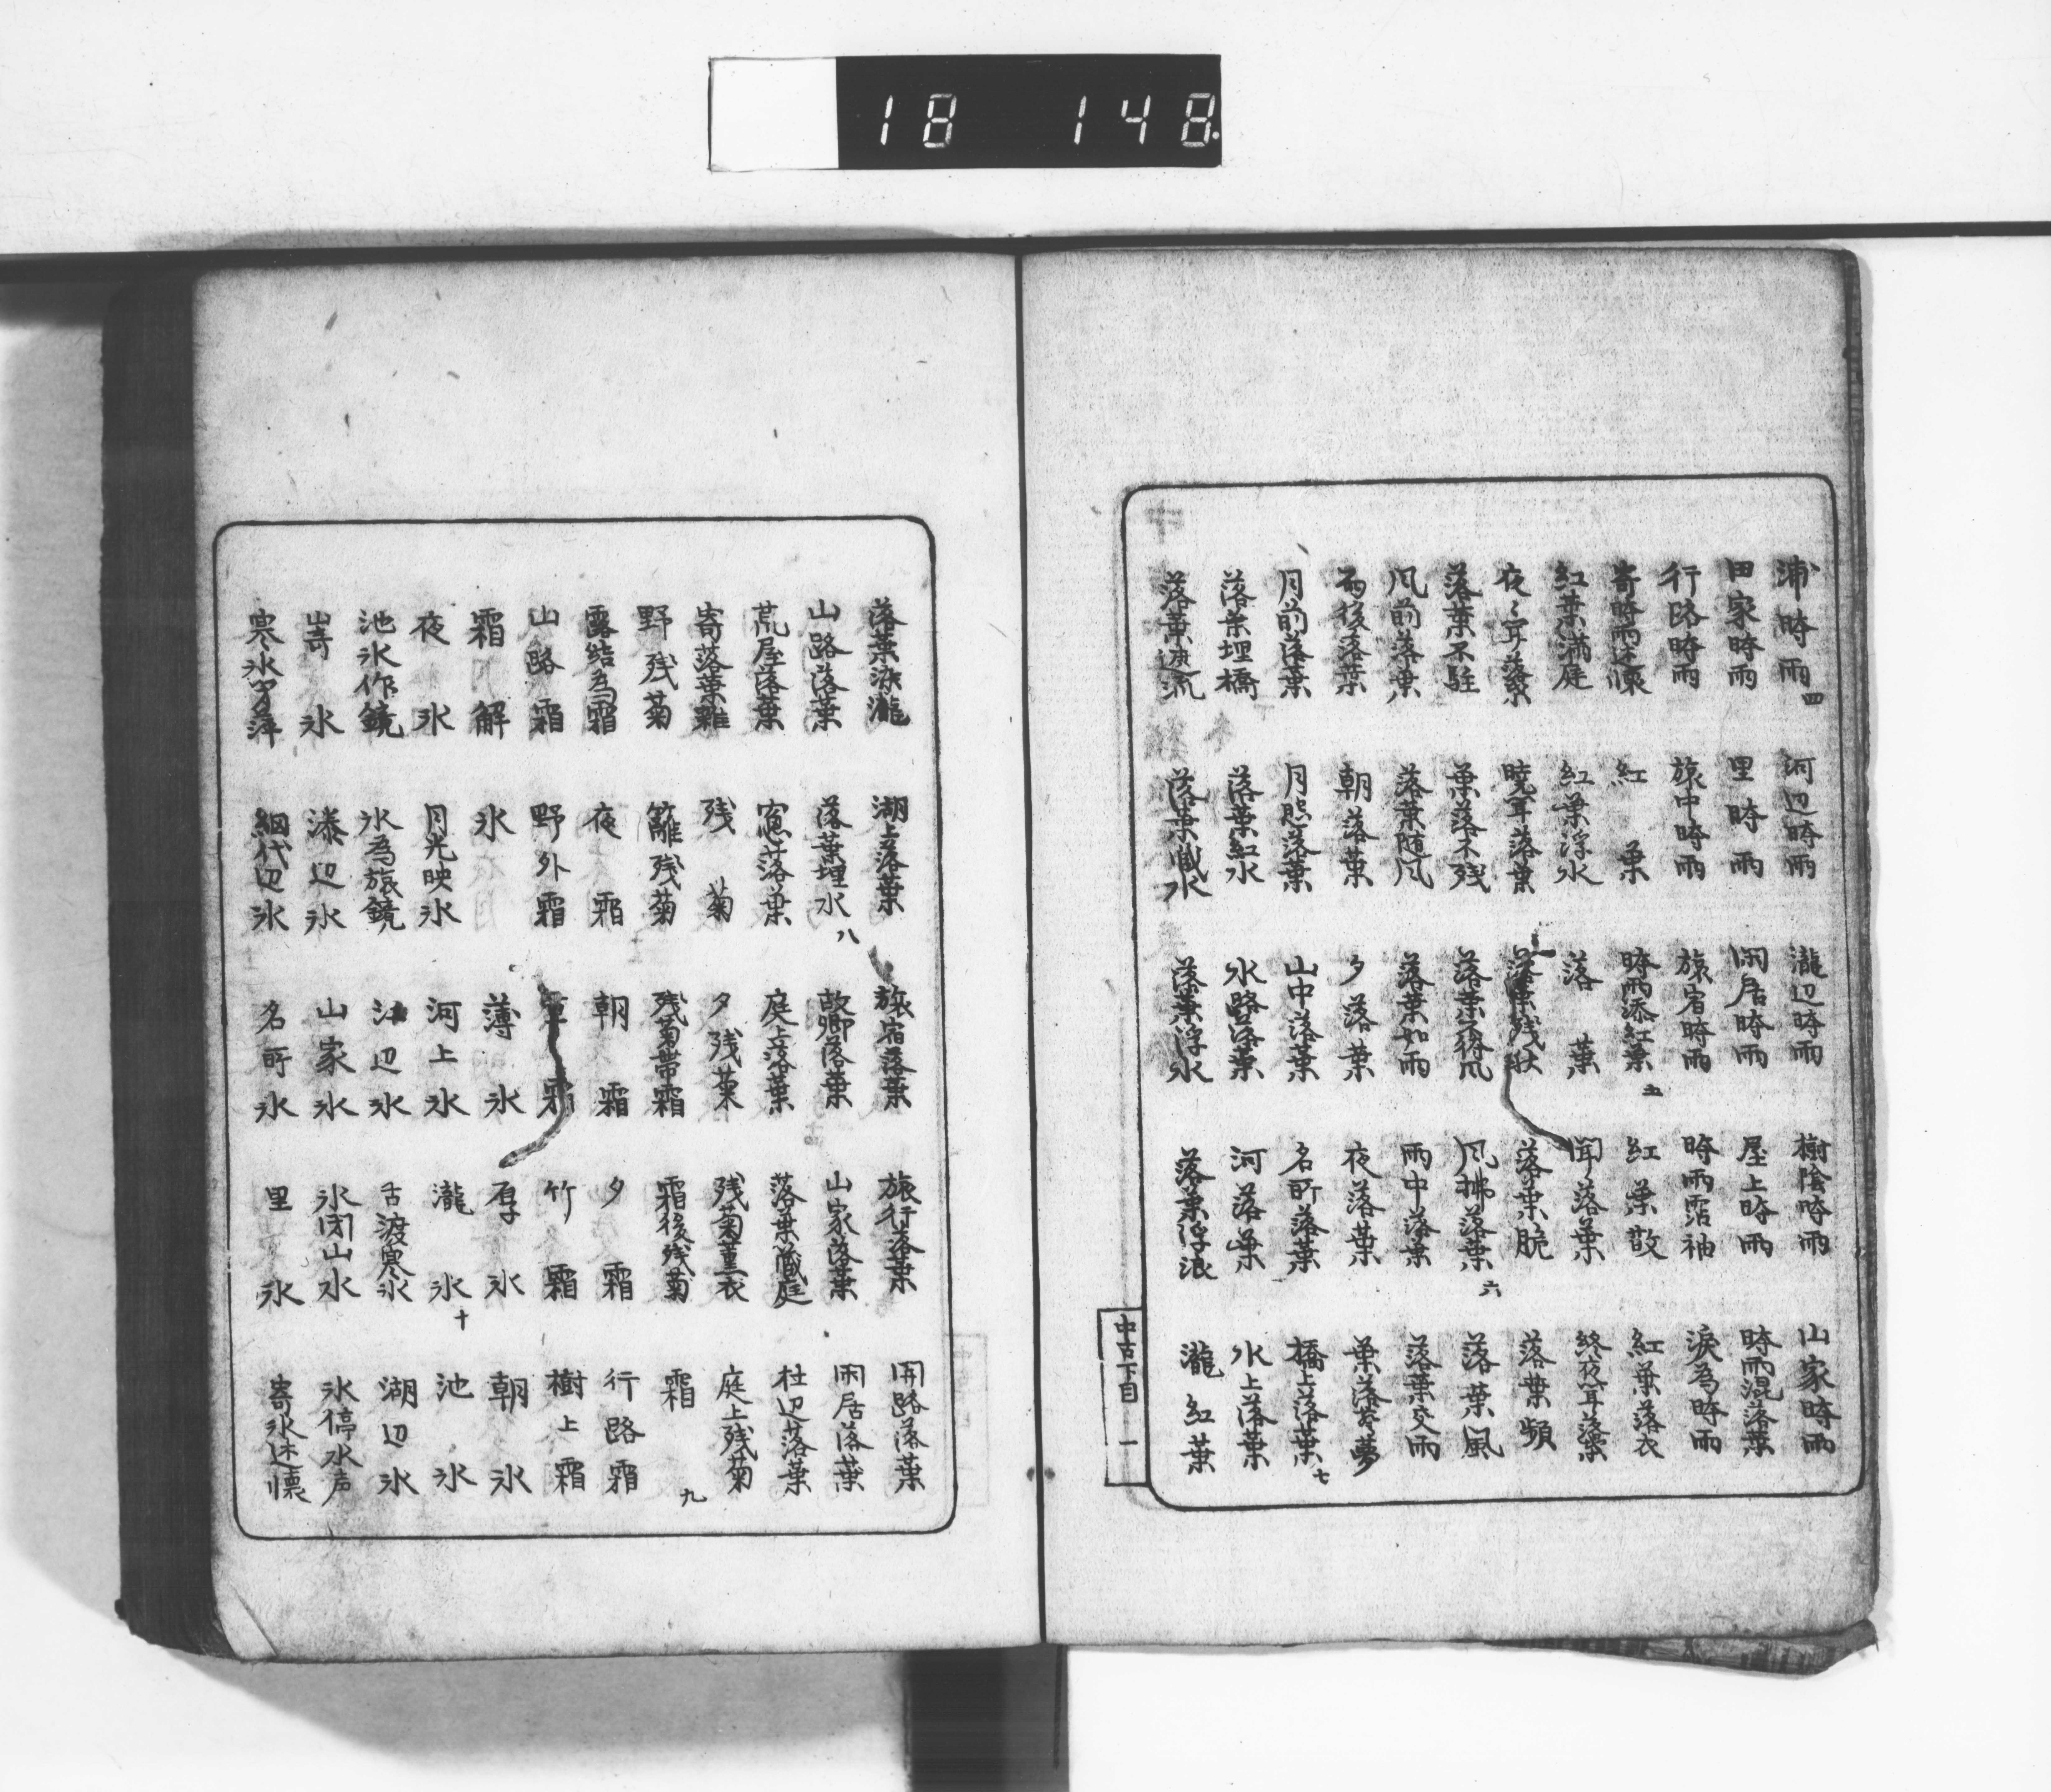 18 148
浦時雨四 河辺時雨 瀧辺時雨 樹陰時雨 山家時雨
田家時雨 里時雨 閑居時雨 屋上時雨 時雨混落葉
行路時雨 旅中時雨 旅宿時雨 時雨霑袖 涙為時雨
寄時雨述懐 紅葉 時雨添紅葉五 紅葉散 紅葉落衣
紅葉満庭 紅葉浮水 落葉 聞落葉 終夜聞落葉
夜々聞落葉 暁聞落葉 落葉残 落葉脆 落葉頻
落葉不駐 葉落不残 落葉不待風 風拂落葉六 落葉風
風前落葉 落葉随風 落葉如雨 雨中落葉 落葉交雨
雨後落葉 朝落葉 夕落葉 夜落葉 葉落夢
月前落葉 月照落葉 山中落葉 名所落葉 橋上落葉七
落葉埋橋 落葉紅水 水路落葉 河落葉 水上落葉
落葉流 落葉水 落葉浮水 落葉浮浪 瀧紅葉
中古下目 一
落葉瀧 湖上落葉 旅宿落葉 旅行落葉 関路落葉
山路落葉 落葉埋水八 故郷落葉 山家落葉 閑居落葉
荒屋落葉 窓落葉 庭上落葉 落葉蔵庭 杜辺落葉
寄落葉雑 残菊 夕残菊 残菊薫衣 庭上残菊
野残菊 籬残菊 残菊帯霜 霜後残菊 霜九
露結為霜 夜霜 朝霜 夕霜 行路霜
山路霜 野外霜 霜 竹霜 樹上霜
霜解 氷 薄氷 厚氷 朝氷
夜氷 月光映氷 河上氷 瀧氷十 池氷
池氷作鏡 氷為旅鏡 江辺氷 古渡寒氷 湖辺氷
嵜氷 湊辺氷 山家氷 氷閉山水 氷停水声
寒氷 網代辺氷 名所氷 里氷 寄氷述懐